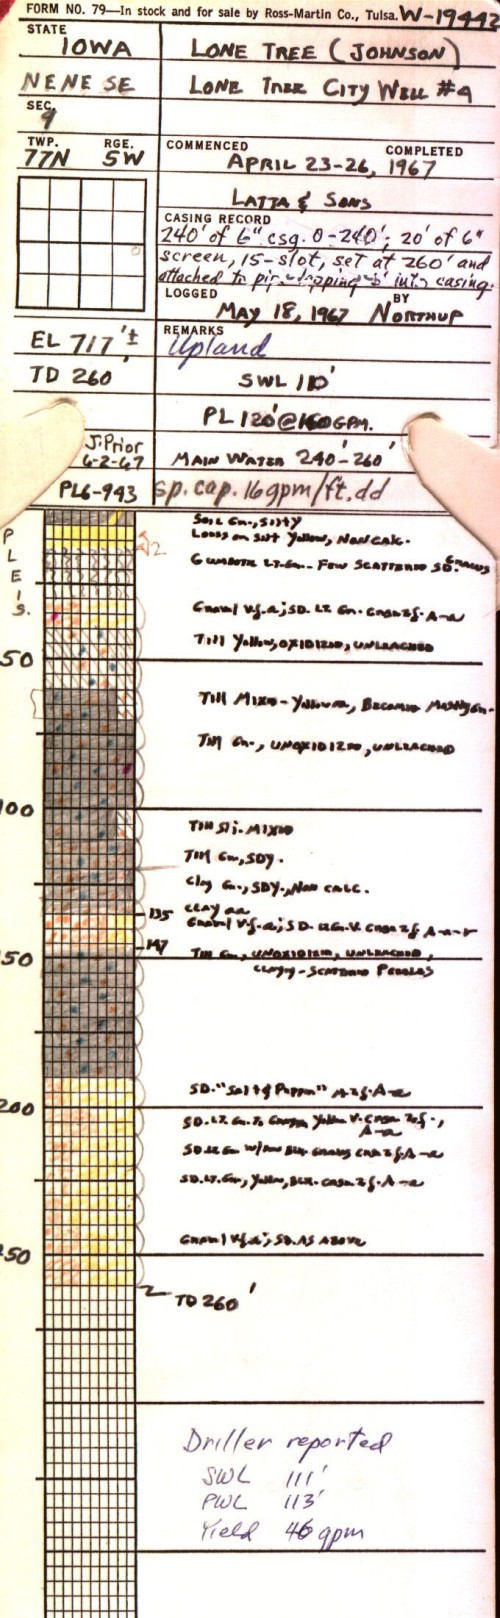 FORM NO. 79—In stock and for sale by Ross-Martin Co., Tulsa. W-19442
STATE
IOWA
LONE TREE (JOHNSON)
NENE SE
LONE TREE CITY WELL #4
SEC.
9
TWP. RGE.
77N 5W
COMMENCED COMPLETED
APRIL 23-26, 1967
LATTA & SONS
CASING RECORD
240' of 6" csg. 0-240'; 20' of 6"
screen, 15-slot, set at 260' and
attached to pipe lapping into casing.
LOGGED BY
MAY 18, 1967 NORTHUP
EL 717'±
REMARKS
Upland
TD 260'
SWL 110'
PL 120'@160GPM.
J. Prior
6-2-67
MAIN WATER 240'-260'
PL6-943
sp. cap. 16gpm/ft.dd
PLE'S.
SOIL GN., SILTY
LOESS OR SILT YELLOW, NONCALC.
2
GUMBOTIL LT.GN.- FEW SCATTERED SD. GRAINS
GRAVEL V.f.a; SD. LT. GN. CRSE&f. A-a
TILL YELLOW, OXIDIZED, UNLEACHED
50
TILL MIXED-YELLOW, BECOMES MOSTLY GN.
TILL GN., UNOXIDIZED, UNLEACHED
100
TILL SLI. MIXED
TILL GN, SDY.
CLAY GN., SDY., NON CALC.
CLAY aa
135
GRAVEL V.f.a; SD. LT.GN. V. CRSE&f A-a-r
147
150
TILL GN., UNOXIDIZED, UNLEACHED,
CLAYEY-SCATTERED PEBBLES
SD. "SALT & PEPPER" A-a
200
SD. LT. GN. TO YELLOW V. CRSE TO f.,
A-a
SD. LT. GN w/ BLK. GRAINS CRSE&f. A-a
SD. LT. GN, YELLOW, BLK. CRSE&f. A-a
GRAVEL V.f.a; SD. AS ABOVE
250
TD 260'
Driller reported
SWL 111'
PWL 113'
Yield 46 gpm